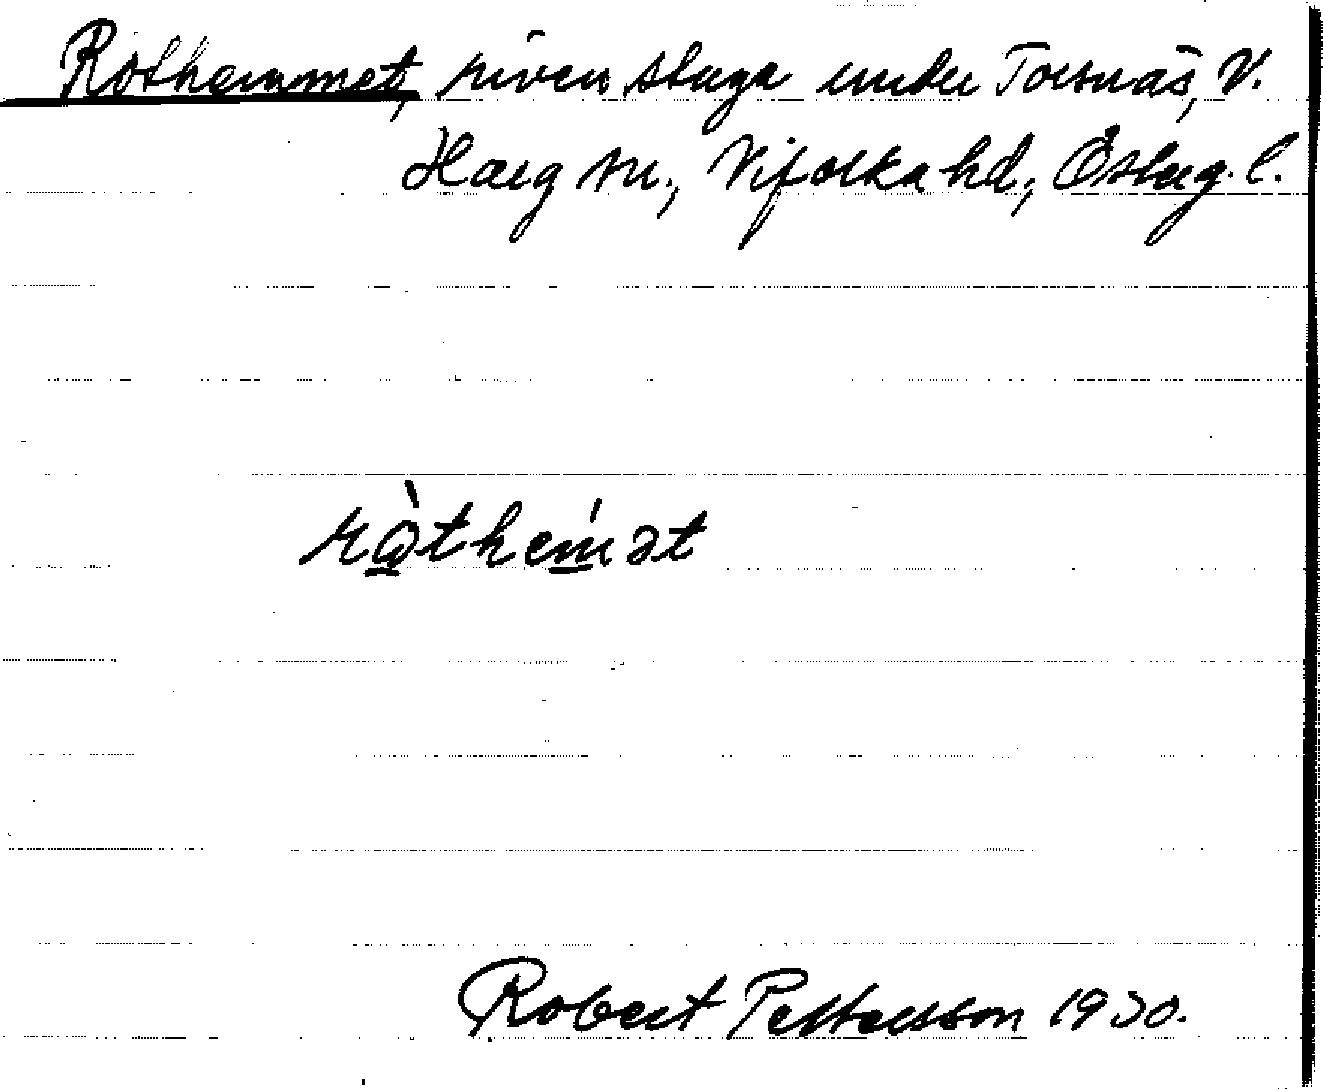 Rothemmet, riven stuga under Torsnäs, V.
Harg sn., Vifolka hd., Östug. l.
ròthem̀ət
Robert Pettersson 1930.